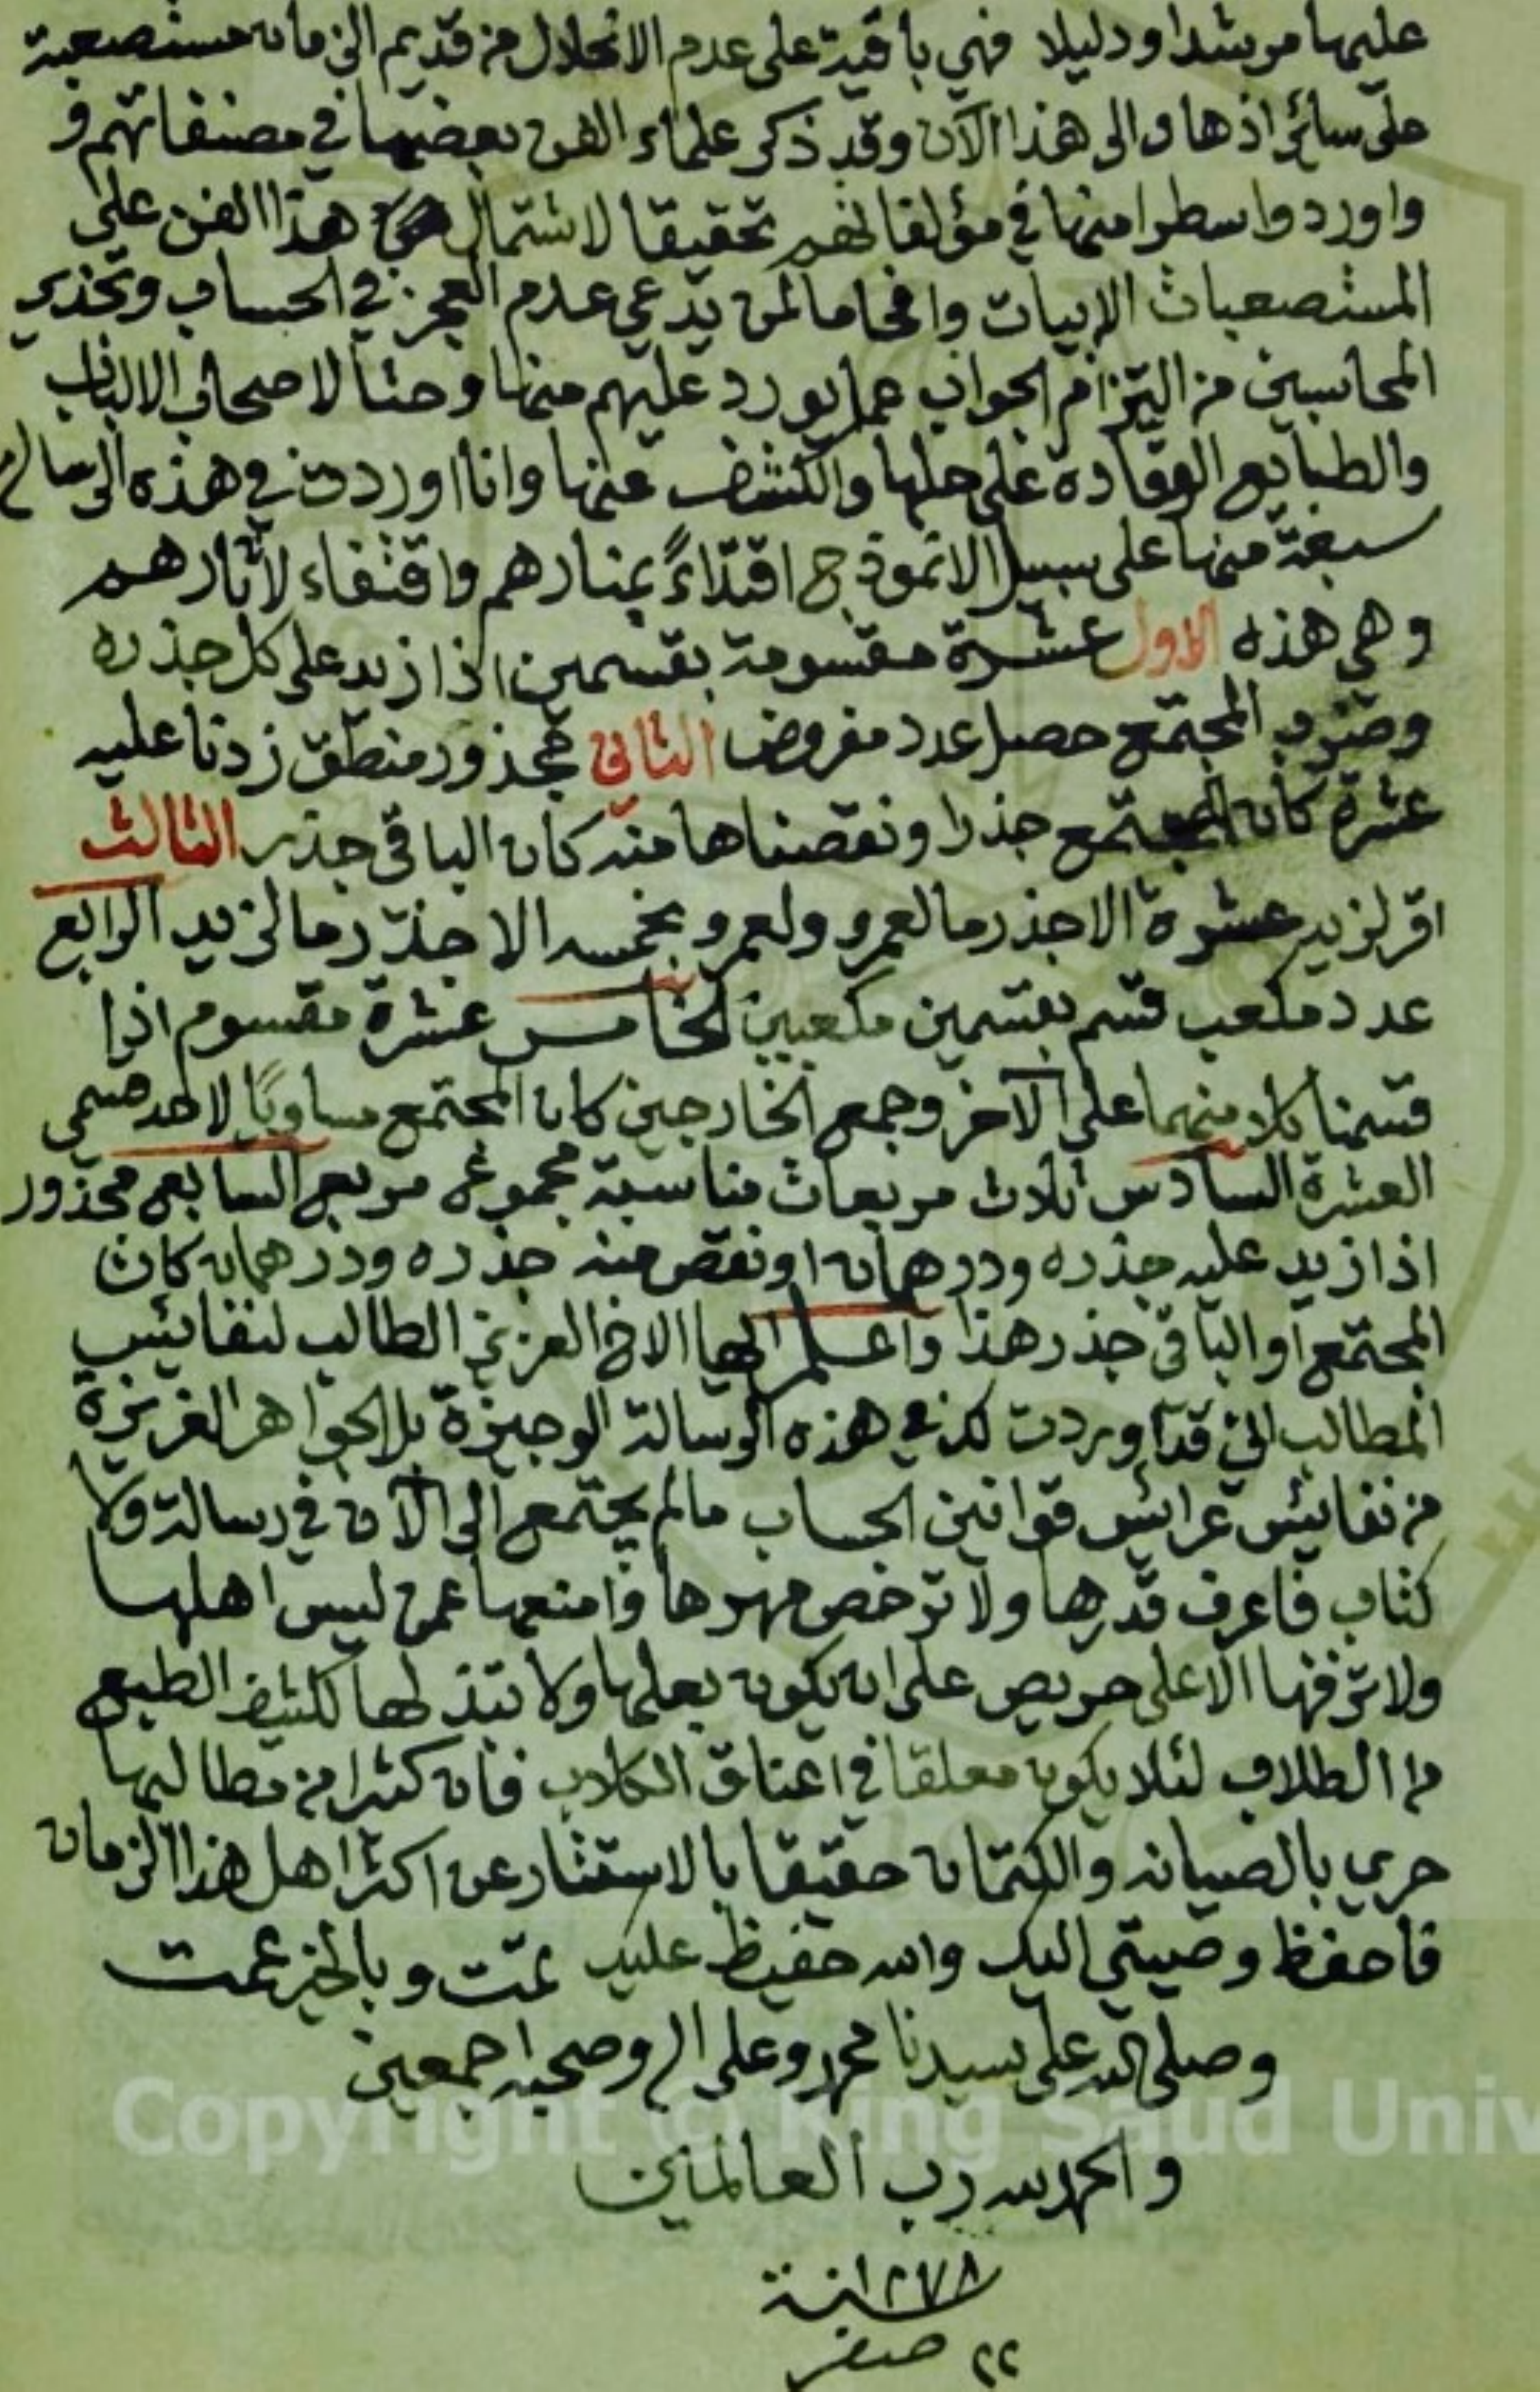 عليها مرشدا ودليلا فهي باقية على عدم الانحلال من قديم الزمان مستصعبة
على سائر اذهان الى هذا الآن وقد ذكر علماء الفن بعضها في مصنفاتهم و
واوردوا سطرا منها في مؤلفاتهم تحقيقا لاشتمال هذا الفن على
المستصعبات الابيات وافحاما لمن يدعي عدم العجز في الحساب وتحذير
المحاسبين من التزام الجواب عما يورد عليهم منها وحثا لاصحاب الالباب
والطبايع الوقادة على حلها والكشف عنها وانا اوردت في هذه الرسالة
سبعة منها على سبيل الانموذج اقتداءً بمنارهم واقتفاء لآثارهم
وهي هذه الاول عشرة مقسومة بقسمين اذا زيد على كل جذره
وضرب المجتمع حصل عدد مفروض الثاني مجذور منطق زدنا عليه
عشرة كان المجتمع جذرا ونقصناها منه كان الباقي جذر الثالث
اقر لزيد عشرة الا جذر ما لعمرو ولعمرو بخمسه الا جذر ما لزيد الرابع
عدد مكعب قسم بقسمين مكعبين الخامس عشرة مقسوم اذا
قسمنا كلا منهما على الآخر وجمع الخارجين كان المجتمع مساويًا لاحد قسمي
العشرة السادس ثلاث مربعات متناسبة مجموعه مربع السابع مجذور
اذا زيد عليه جذره ودرهمان او نقص منه جذره ودرهمان كان
المجتمع او الباقي جذر هذا واعلم ايها الاخ العزيز الطالب لنفائس
المطالب اني قد اوردت لك في هذه الرسالة الوجيزة بل الجواهر العزيزة
من نفائس عرائس قوانين الحساب مالم يجتمع الى الآن في رسالة ولا
كتاب فاعرف قدرها ولا ترخص مهرها وامنعها عمن ليس اهلها
ولا تزفها الا على حريص على ان يكون بعلها ولا تبذلها لكثيف الطبع
من الطلاب لئلا يكون معلقا في اعناق الكلاب فان كثيرا من مطالبها
حري بالصيانه والكتمان حقيقا بالاستثار عن اكثر اهل هذا الزمان
فاحفظ وصيتي اليك والله حفيظ عليك تمت وبالخير عمت
وصلى الله على سيدنا محمد وعلى اله وصحبه اجمعين
والحمد لله رب العالمين
سنة ١٢٧٨
٢٢ صفر
Copyright © King Saud Univ